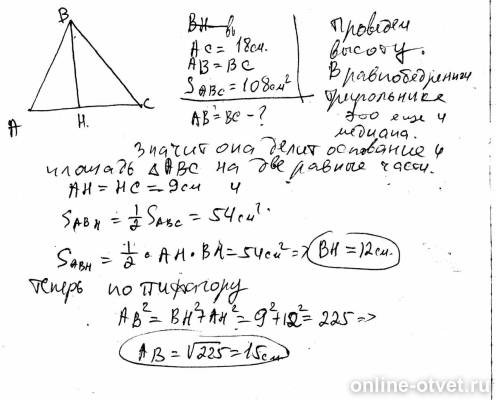 B
A
H.
C
BH вы
AC = 18см.
AB = BC
S ABC = 108 см²
AB = BC - ?
Проведем
высоту.
В равнобедренном
треугольнике
это еще и
медиана.
Значит она делит основание и
площадь △ABC на две равные части.
AH = HC = 9 см и
S ABH = 1/2 S ABC = 54 см².
S ABH = 1/2 · AH · BH = 54 см² => BH = 12 см.
Теперь по Пифагору
AB² = BH² + AH² = 9² + 12² = 225 =>
AB = √225 = 15 см
online-otvet.ru